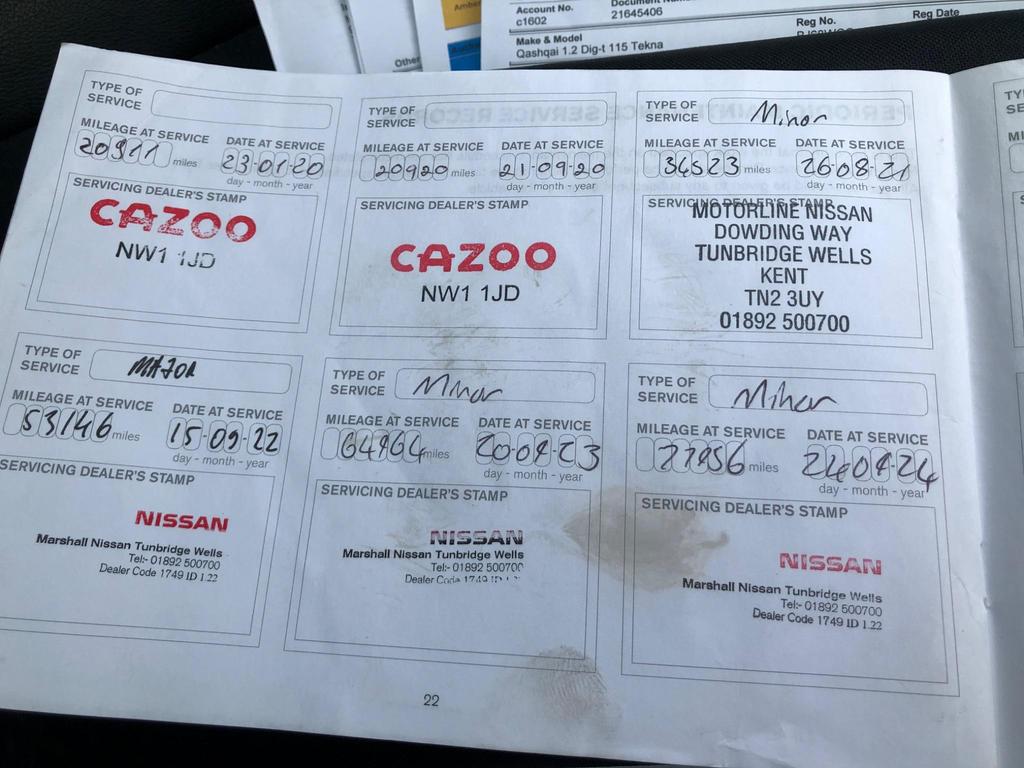 Account No.
c1602
21645406
Make & Model
Qashqai 1.2 Dig-t 115 Tekna
Reg No.
Reg Date
Other
TYPE OF SERVICE
MILEAGE AT SERVICE
20911 miles
DATE AT SERVICE
23-01-20
day - month - year
SERVICING DEALER'S STAMP
CAZOO
NW1 1JD
TYPE OF SERVICE
MILEAGE AT SERVICE
20920 miles
DATE AT SERVICE
21-09-20
day - month - year
SERVICING DEALER'S STAMP
CAZOO
NW1 1JD
TYPE OF SERVICE
Minor
MILEAGE AT SERVICE
34523 miles
DATE AT SERVICE
26-08-21
day - month - year
SERVICING DEALER'S STAMP
MOTORLINE NISSAN
DOWDING WAY
TUNBRIDGE WELLS
KENT
TN2 3UY
01892 500700
TYPE OF SERVICE
MAJOR
MILEAGE AT SERVICE
53146 miles
DATE AT SERVICE
15-09-22
day - month - year
SERVICING DEALER'S STAMP
NISSAN
Marshall Nissan Tunbridge Wells
Tel:- 01892 500700
Dealer Code 1749 ID 1.22
TYPE OF SERVICE
Minor
MILEAGE AT SERVICE
64964 miles
DATE AT SERVICE
day - month - year
SERVICING DEALER'S STAMP
NISSAN
Marshall Nissan Tunbridge Wells
Tel:- 01892 500700
Dealer Code 1749 ID
TYPE OF SERVICE
Minor
MILEAGE AT SERVICE
miles
DATE AT SERVICE
day - month - year
SERVICING DEALER'S STAMP
NISSAN
Marshall Nissan Tunbridge Wells
Tel:- 01892 500700
Dealer Code 1749 ID 1.22
22